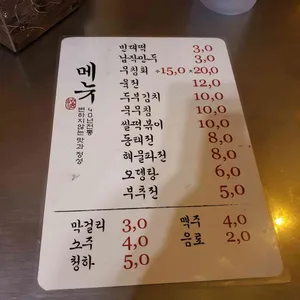 메뉴
40년전통
변하지않는 맛과 정성
빈대떡 3,0
납작만두 3,0
무침회 15,0 20,0
육전 12,0
두부김치 10,0
묵무침 10,0
쌀떡볶이 10,0
동태전 8,0
해물파전 8,0
오뎅탕 6,0
부추전 5,0
막걸리 3,0
소주 4,0
청하 5,0
맥주 4,0
음료 2,0